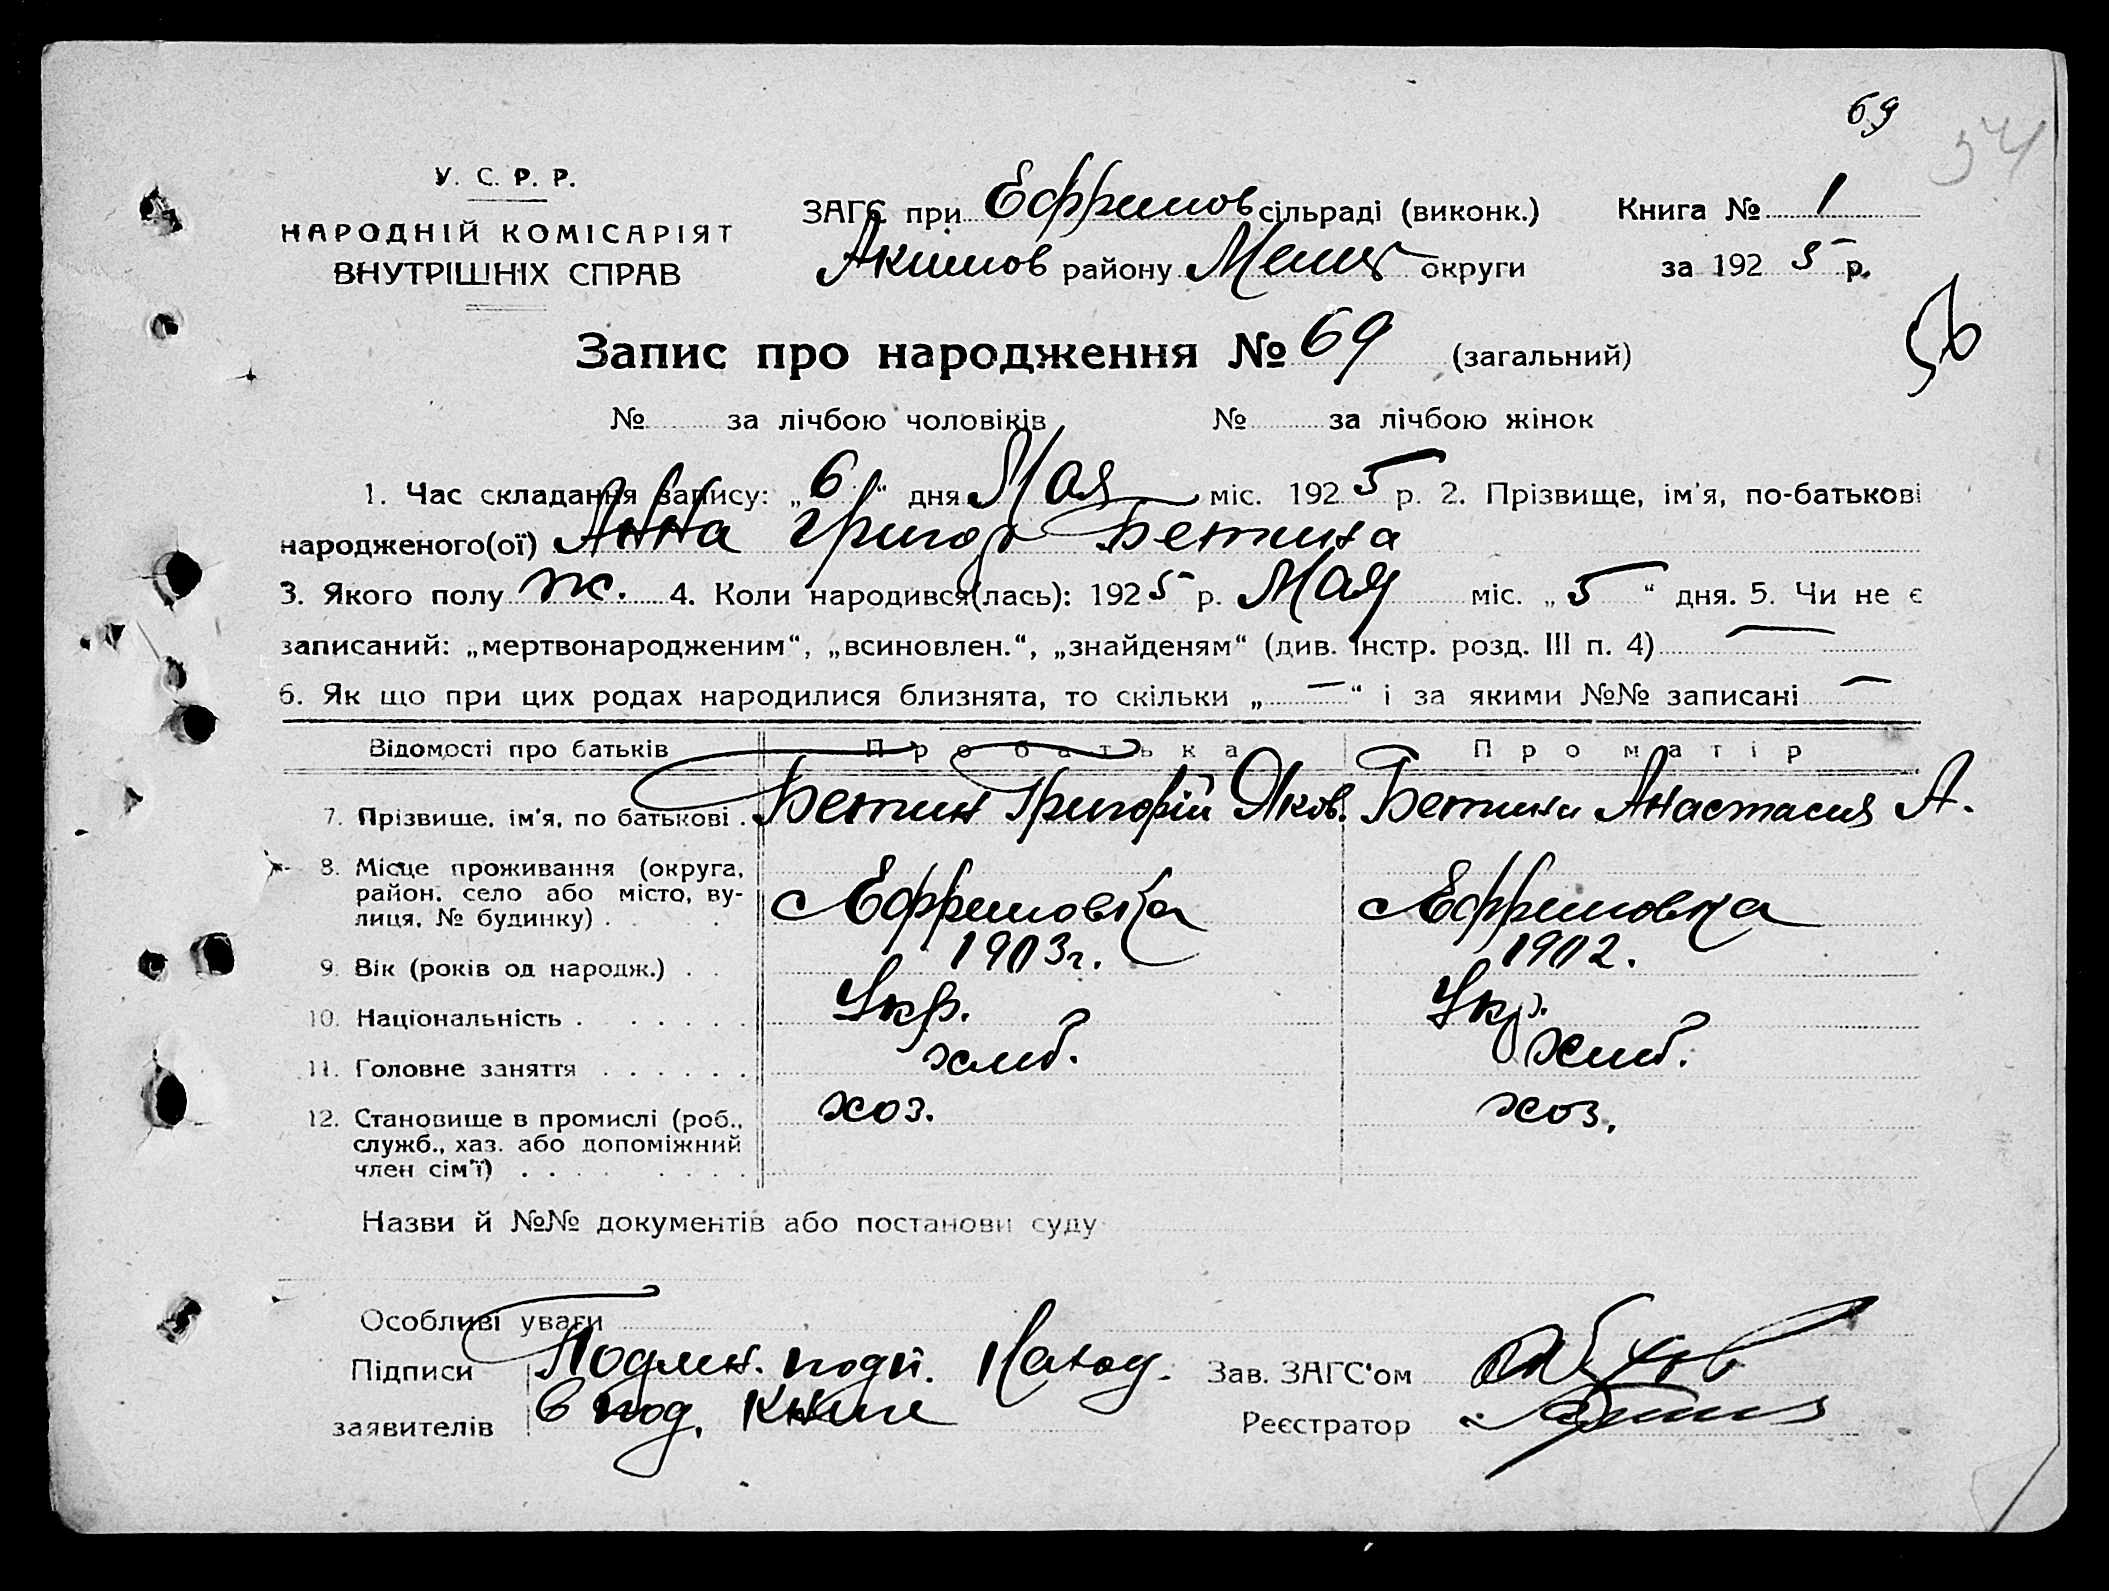 69
54
У. С. Р. Р.
НАРОДНІЙ КОМІСАРІЯТ
ВНУТРІШНІХ СПРАВ
ЗАГС при Ефремов сільраді (виконк.) Книга № 1
Акимов району Мелит округи за 1925 р.
56
Запис про народження № 69 (загальний)
№ за лічбою чоловіків № за лічбою жінок
1. Час складання запису: „6“ дня Мая міс. 1925 р. 2. Прізвище, ім'я, по-батькові
народженого(ої) Анна Григор Бетина
3. Якого полу ж. 4. Коли народився(лась): 1925 р. Мая міс. „5“ дня. 5. Чи не є
записаний: „мертвонародженим“, „всиновлен.“, „знайденям“ (див. інстр. розд. III п. 4) —
6. Як що при цих родах народилися близнята, то скільки „—“ і за якими №№ записані —
Відомості про батьків Про батька Про матір
7. Прізвище, ім'я, по батькові . Бетин Григорій Яков. Бетина Анастасия А.
8. Місце проживання (округа,
район, село або місто, ву-
лиця, № будинку) . . . с Ефремовка с Ефремовка
9. Вік (років од народж.) . . 1903г. 1902.
10. Національність . . . . . . Укр. Укр.
11. Головне заняття . . . . . . хлиб. хлиб.
12. Становище в промислі (роб.,
служб., хаз. або допоміжний
член сім'ї) . . . . . . . хоз. хоз.
Назви й №№ документів або постанови суду
Особливі уваги
Підписи Подлин. подп. Наход. Зав. ЗАГС'ом
заявителів в под. книге Реєстратор